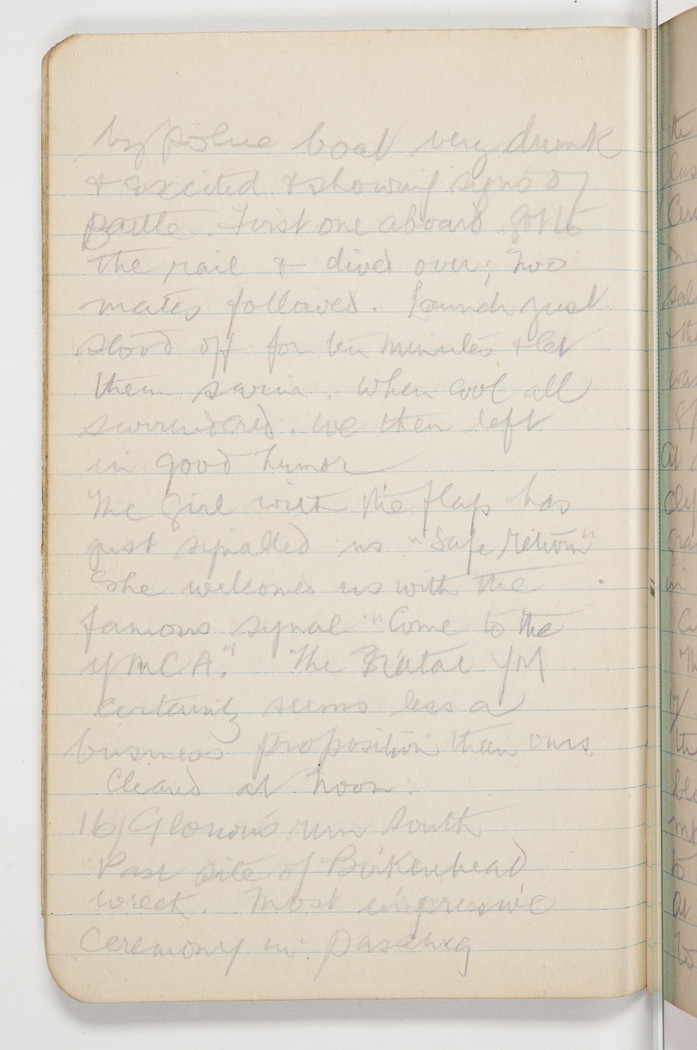 by police boat very drunk
& excited & showing signs of
battle. First one aboard got to
the rail & dived over; two
mates followed. Launch just
stood off for ten minutes & let
them swim. When cool all
surrendered. We then left
in good humor
The Girl with the flags has
just signalled us "Safe return"
She welcomed us with the
famous signal "Come to the
YMCA." The Natal YM
certainly seems less a
business proposition than ours
Cleared at noon.
16/ Glorious run South
Past site of Birkenhead
wreck. Most impressive
Ceremony in passing